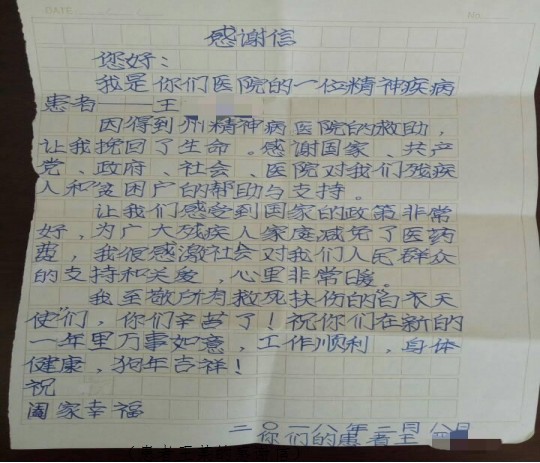 DATE
No.
感谢信
您好：
我是你们医院的一位精神疾病
患者——王
因得到州精神病医院的救助，
让我挽回了生命。感谢国家、共产
党、政府、社会、医院对我们残疾
人和贫困户的帮助与支持。
让我们感受到国家的政策非常
好，为广大残疾人家庭减免了医药
费，我很感激社会对我们人民群众
的支持和关爱，心里非常暖。
我至敬所有救死扶伤的"白衣天
使"们，你们辛苦了！祝你们在新的
一年里万事如意，工作顺利，身体
健康，狗年吉祥！
祝
阖家幸福
二〇一八年二月八日
你们的患者王